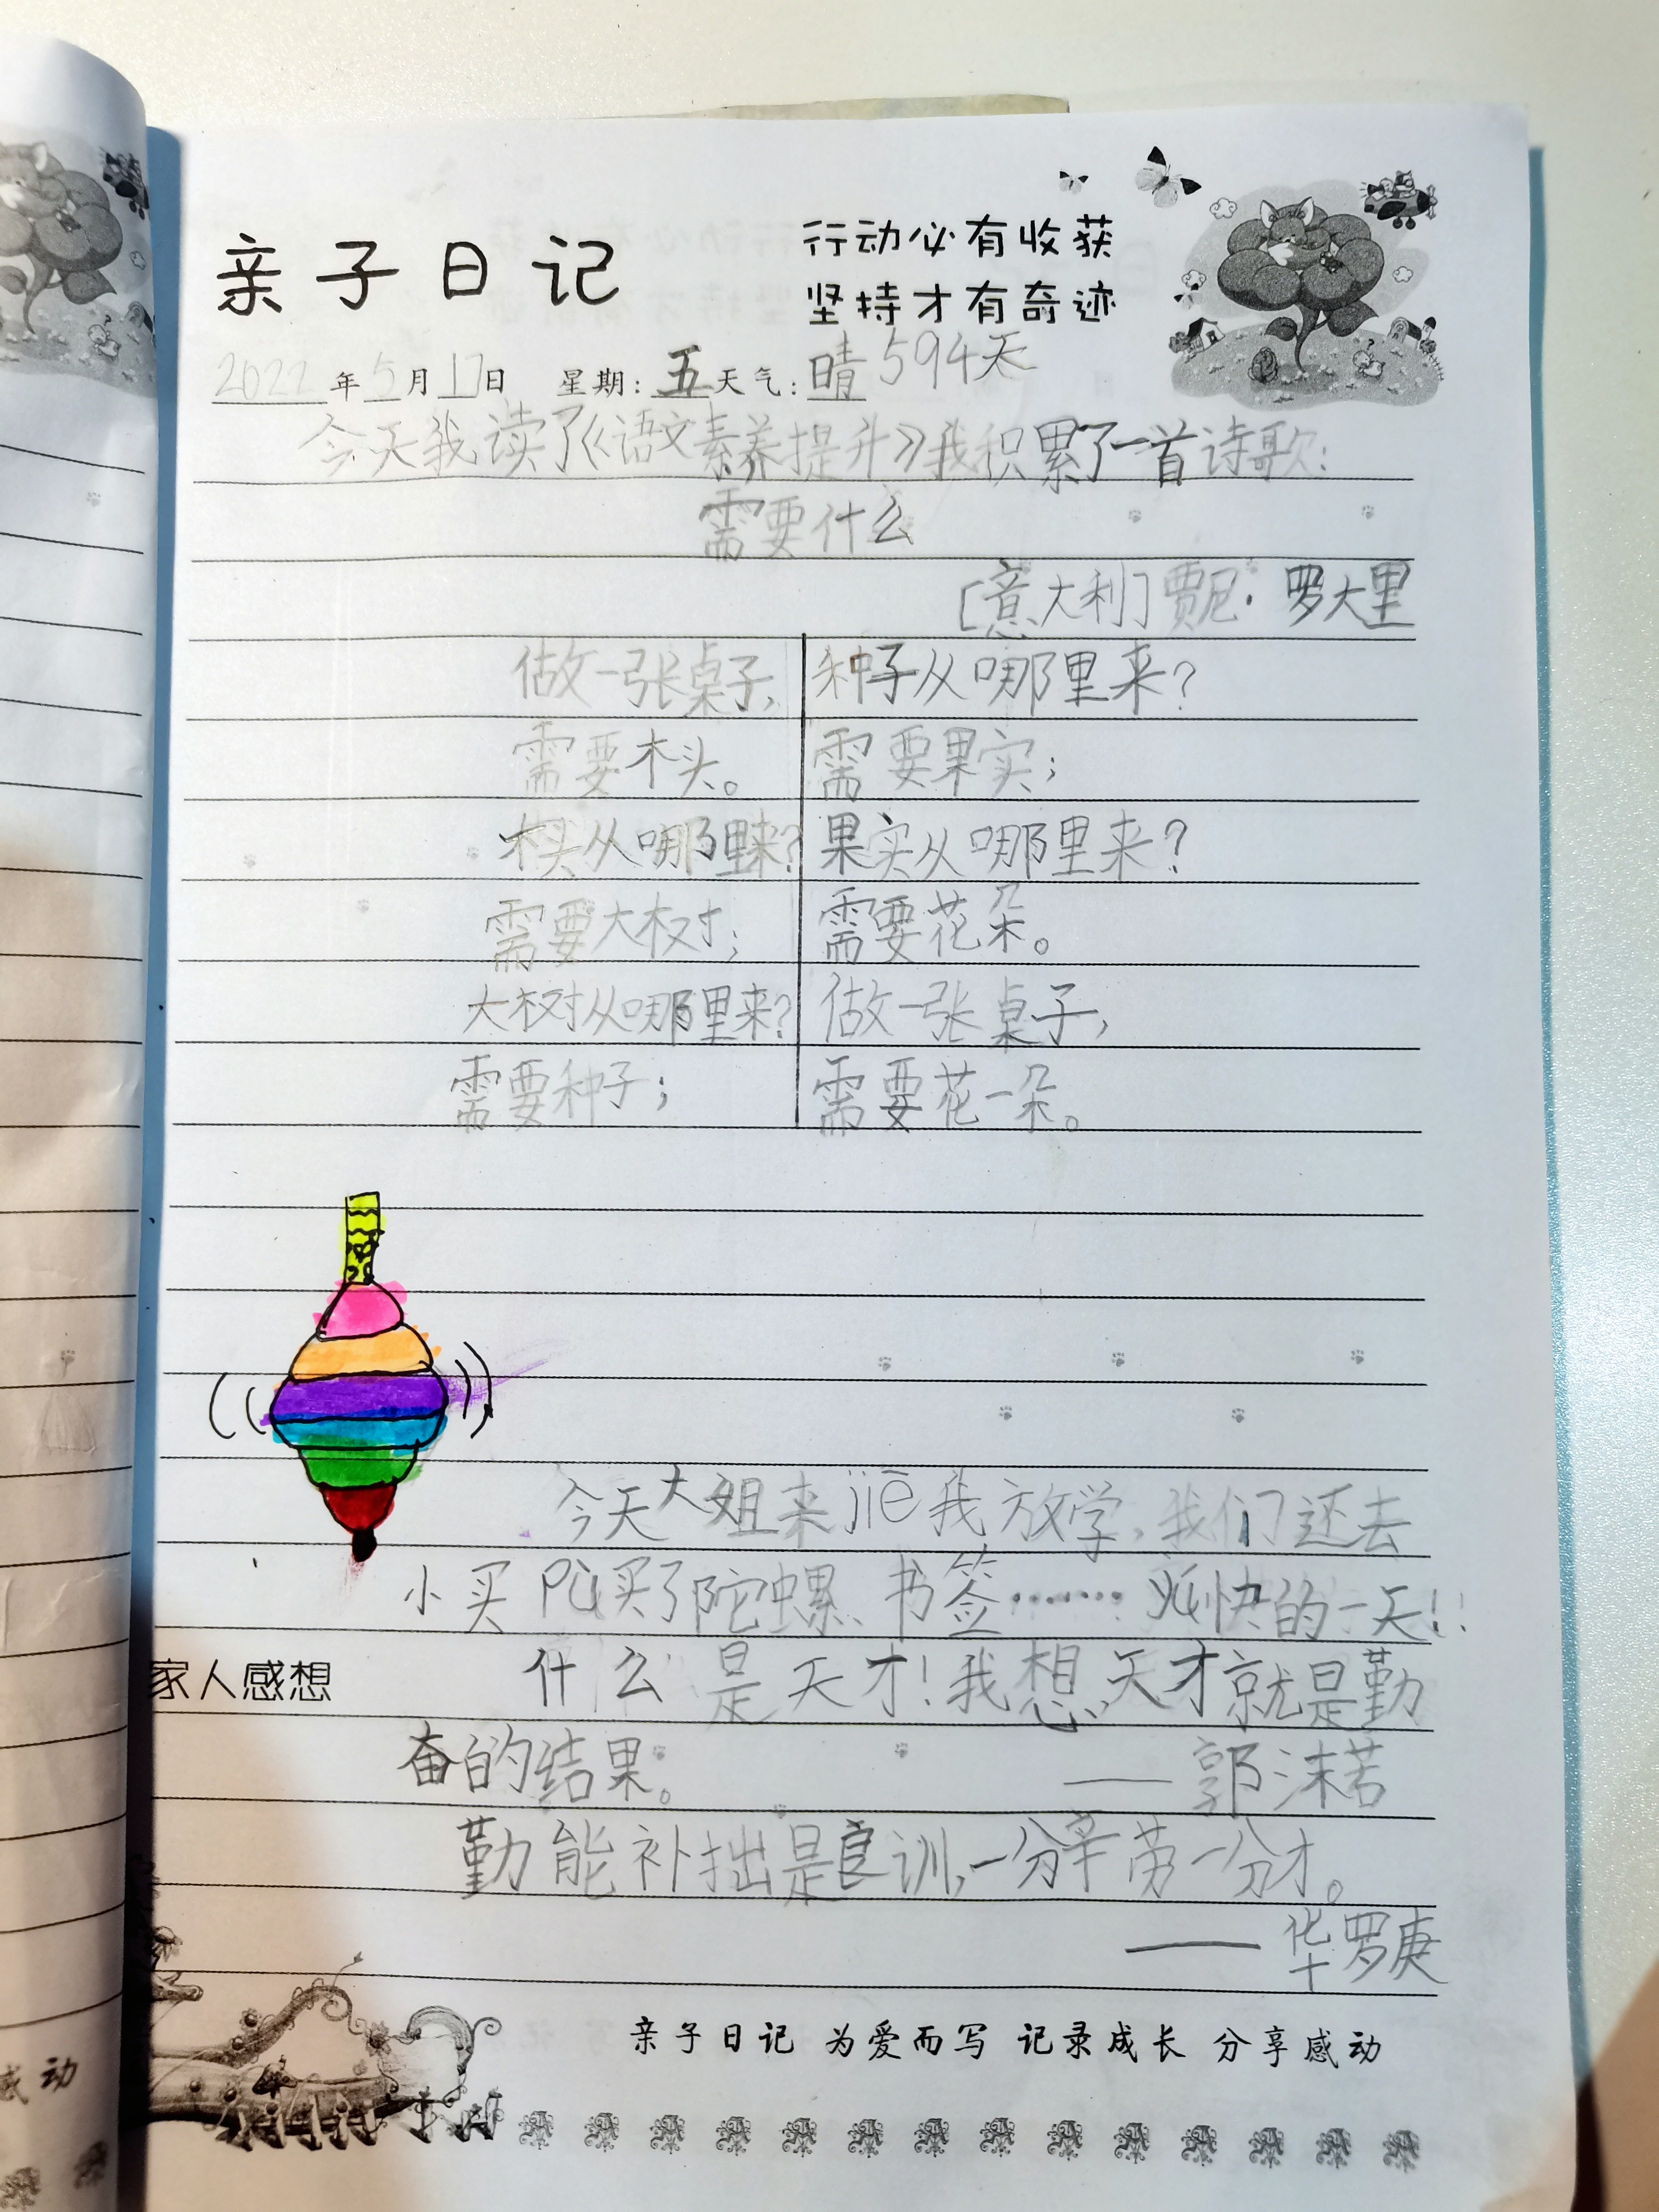 亲子日记
行动必有收获
坚持才有奇迹
2022年5月17日 星期：五 天气：晴 594天
今天我读了《语文素养提升》我积累了一首诗歌：
需要什么
[意大利]贾尼·罗大里
做一张桌子，
需要木头。
木头从哪里来？
需要大树；
大树从哪里来？
需要种子；
种子从哪里来？
需要果实；
果实从哪里来？
需要花朵。
做一张桌子，
需要花一朵。
今天大姐来jiē我放学，我们还去
小买pù买了陀螺、书签……愉快的一天！！
家人感想
什么是天才！我想，天才就是勤
奋的结果。
——郭沫若
勤能补拙是良训，一分辛劳一分才。
——华罗庚
亲子日记 为爱而写 记录成长 分享感动
感动